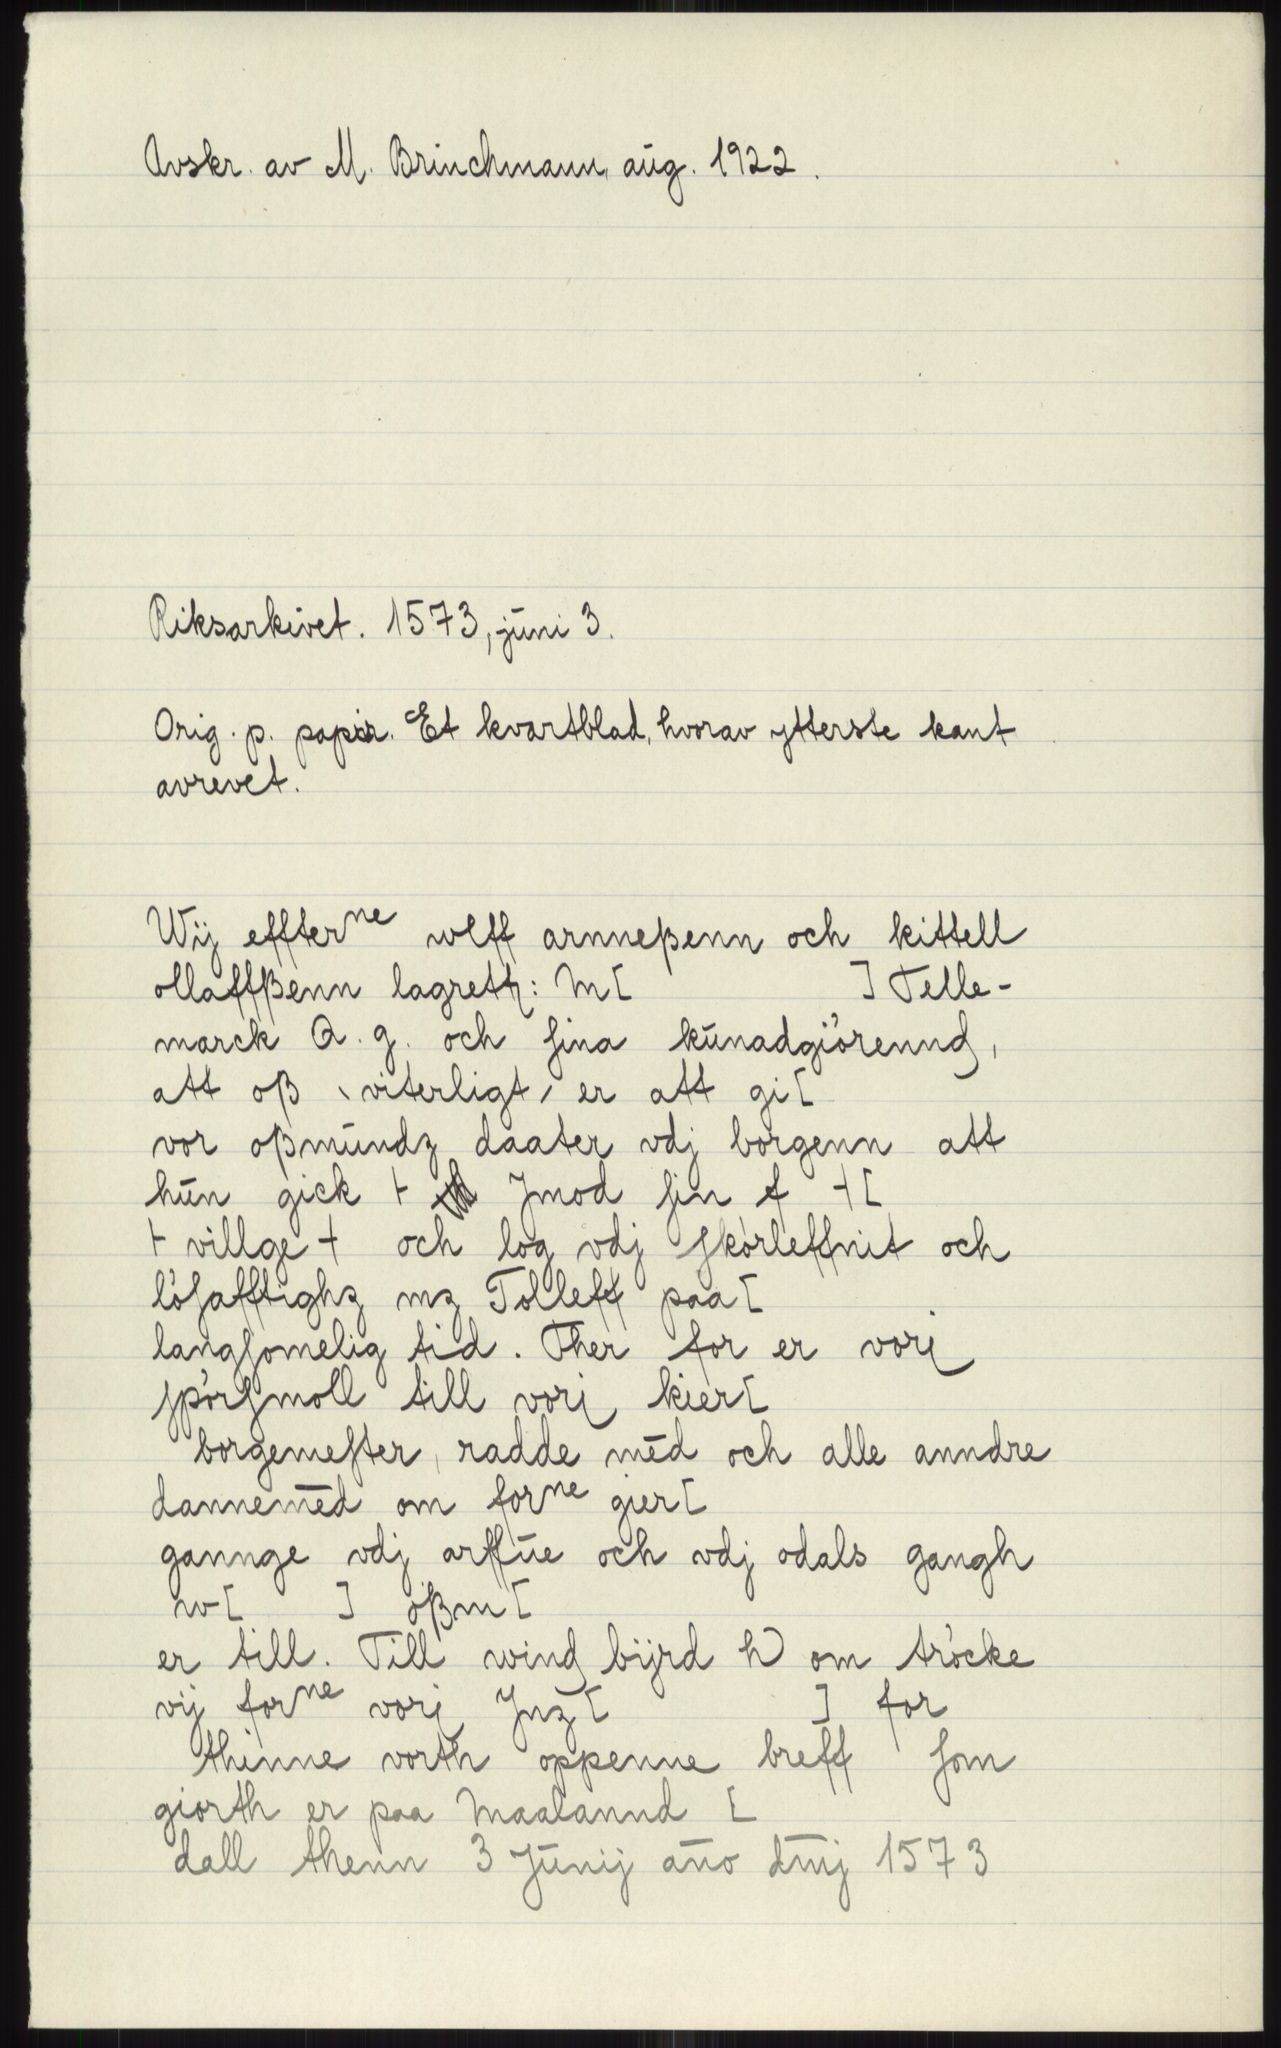 Avskr. av M. Brinchmann, aug. 1922.
Riksarkivet. 1573, juni 3.
Orig. p. papir. Et kvartblad, hvorav ytterste kant
avrevet.
Wij effterne wlff arnneßenn och kittell
ollaffßenn lagrett: M[ ] Telle-
marck A. g. och ſina kunadgiörennd,
att oß ‵viterligt′ er att gi[
vor oßmundz daater vdj borgenn att
hun gick ⊦ Jmod ſin f ⊣[
⊦ villge ⊣ och log vdj ſkörleffnit och
löſafftighz mz Tolleff paa[
langſomelig tid. Ther for er vorj
ſpörſmoll till vorj kier[
borgemeſter, radde mēd och alle anndre
dannemēd om forne gier[
gannge vdj arffue och vdj odals gangh
w[ ] oßm[
er till. Till wind bijrd h om tröcke
vij forne vorj Jnz[ ] for
thinne vorth oppenne breff ſom
giorth er paa Maalannd [
dall thenn 3 Junij año dm̄j 1573